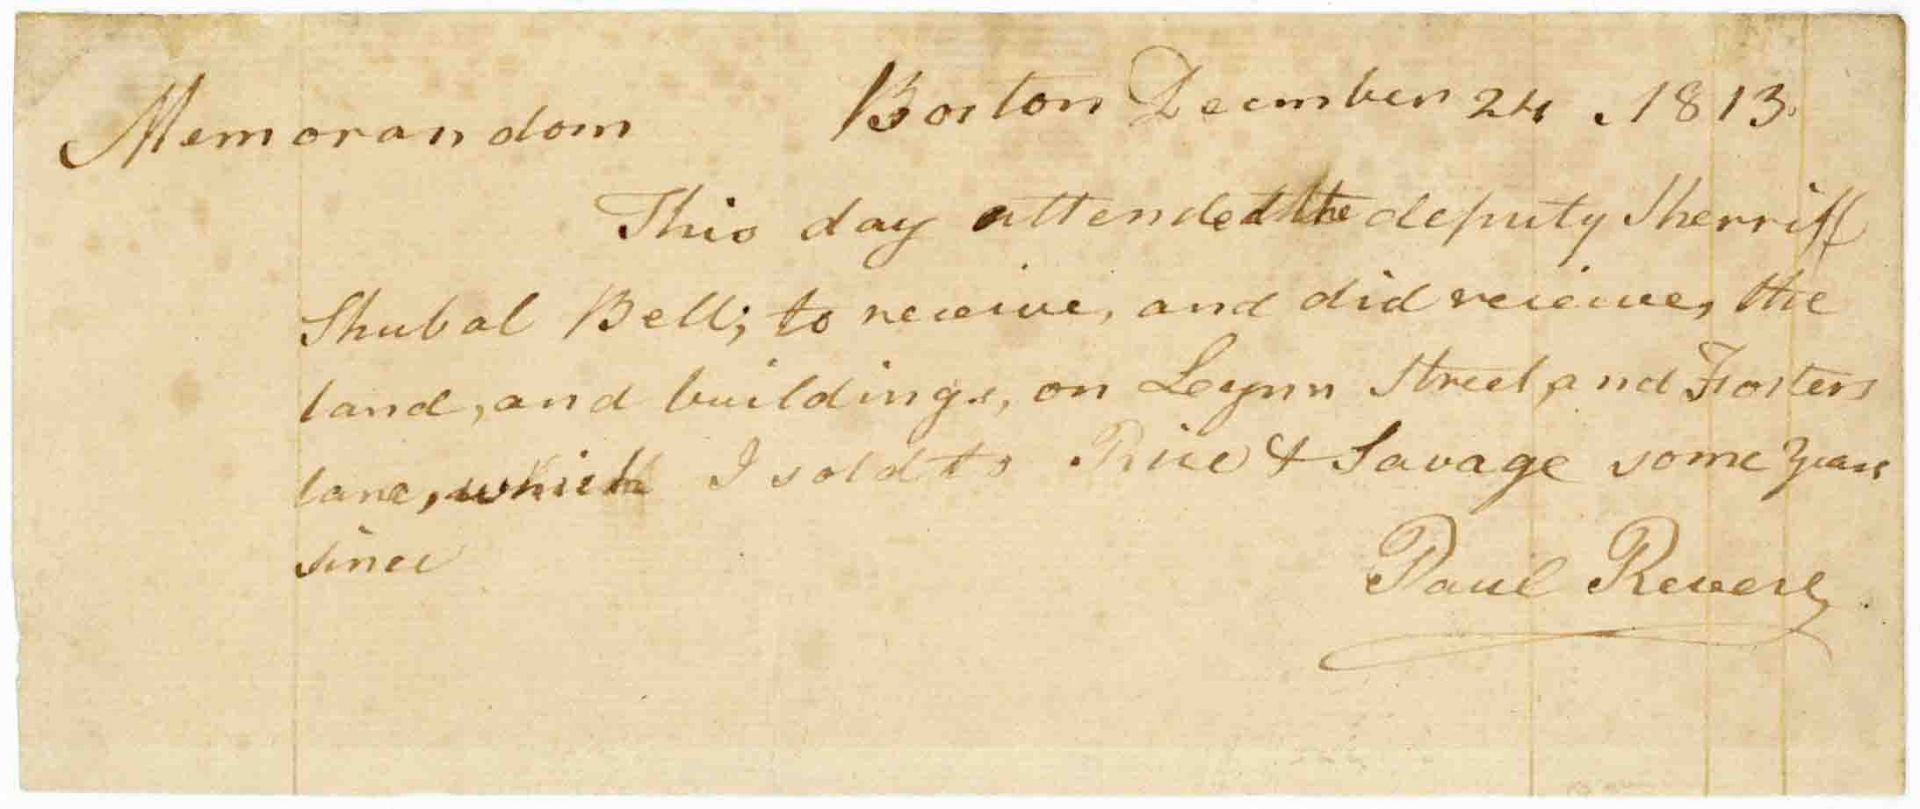 Memorandom Boston December 24, 1813.
This day attended the deputy Sherriff
Shubal Bell; to receive, and did receive, the
land, and buildings, on Leynn Street, and Fosters
lane, which I sold to Rice & Savage some Years
since
Paul Revere